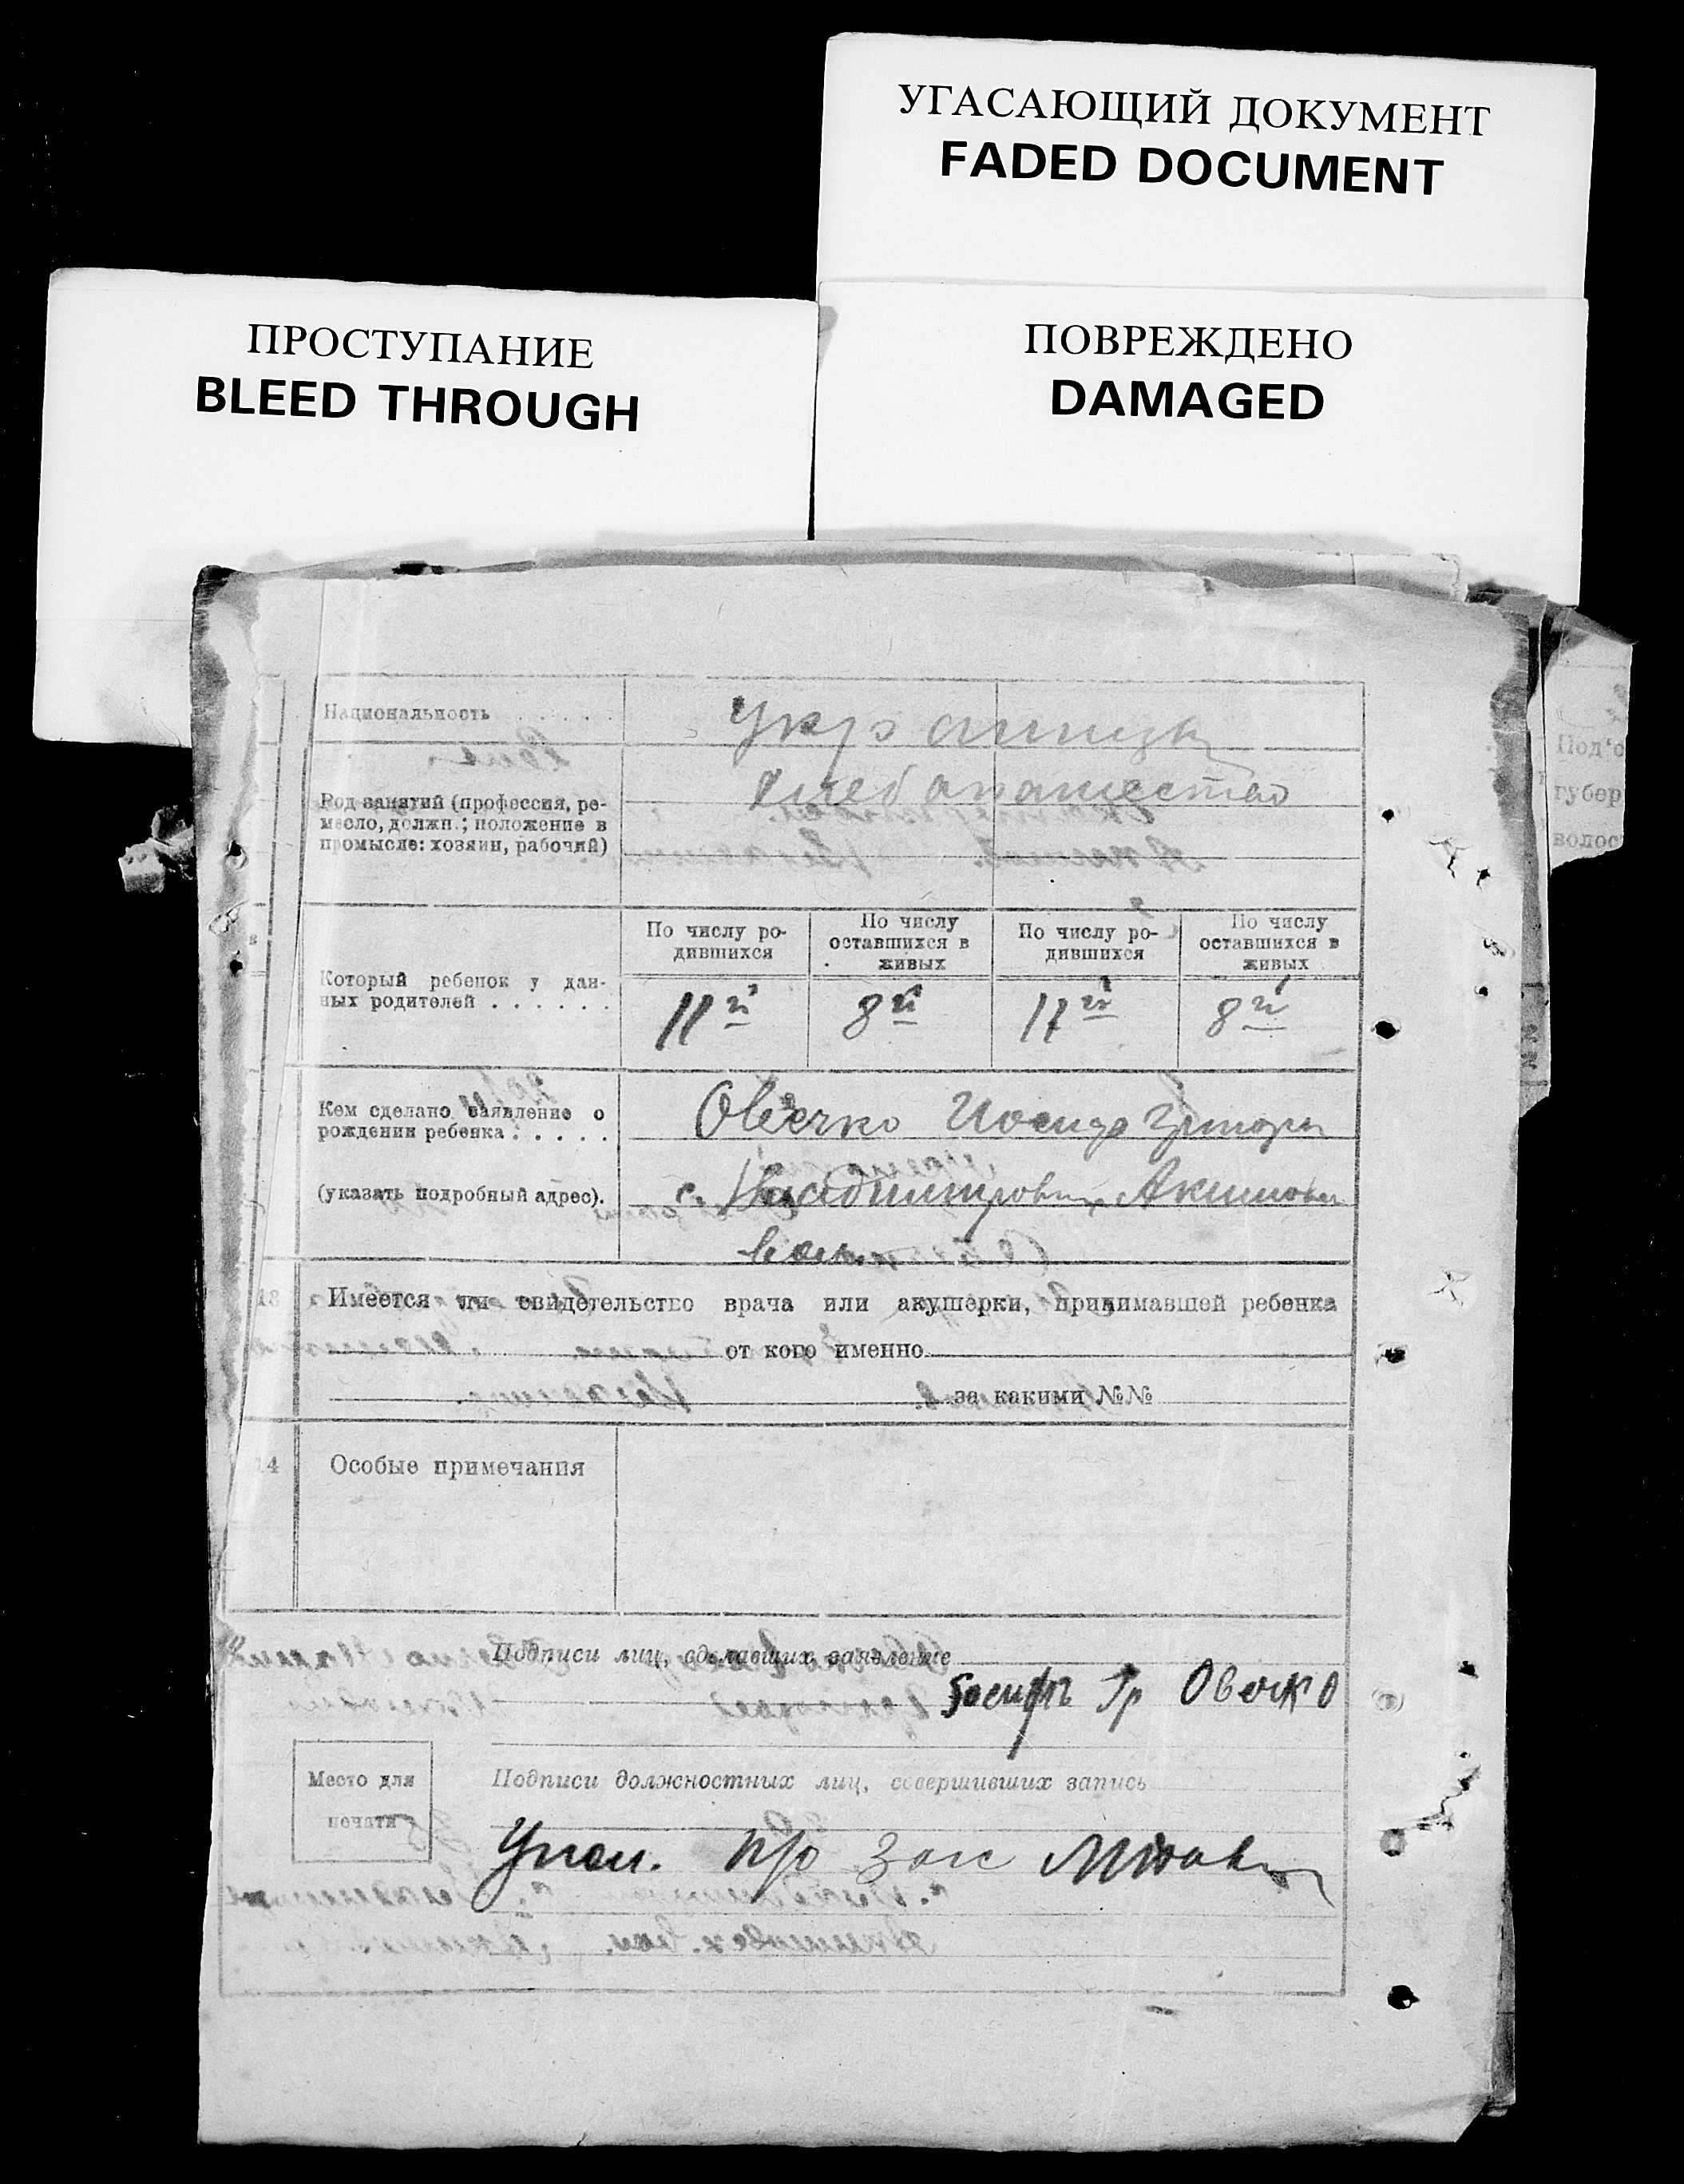 УГАСАЮЩИЙ ДОКУМЕНТ
FADED DOCUMENT
ПРОСТУПАНИЕ
BLEED THROUGH
ПОВРЕЖДЕНО
DAMAGED
Национальность . . . . . .
Род занятий (профессия, ре-
месло, должн.; положение в
промысле: хозяин, рабочий)
хлебопашество
Который ребенок у дан-
ных родителей . . . . . .
По числу ро-
дившихся
По числу
оставшихся в
живых
По числу ро-
дившихся
По числу
оставшихся в
живых
11й 8й 11й 8й
Кем сделано заявление о
рождении ребенка . . . . .
Овечко Иосиф Григорьев
(указать подробный адрес).
с. Владимировка, Акимовск
волости
13 Имеется ли свидетельство врача или акушерки, принимавшей ребенка
от кого именно
за какими №№
14 Особые примечания
Подписи лиц, сделавших заявление
Іосифъ Гр Овечко
Место для
печати
Подписи должностных лиц, совершивших запись
Упол. п/о Загс
Под'о
губер
волос